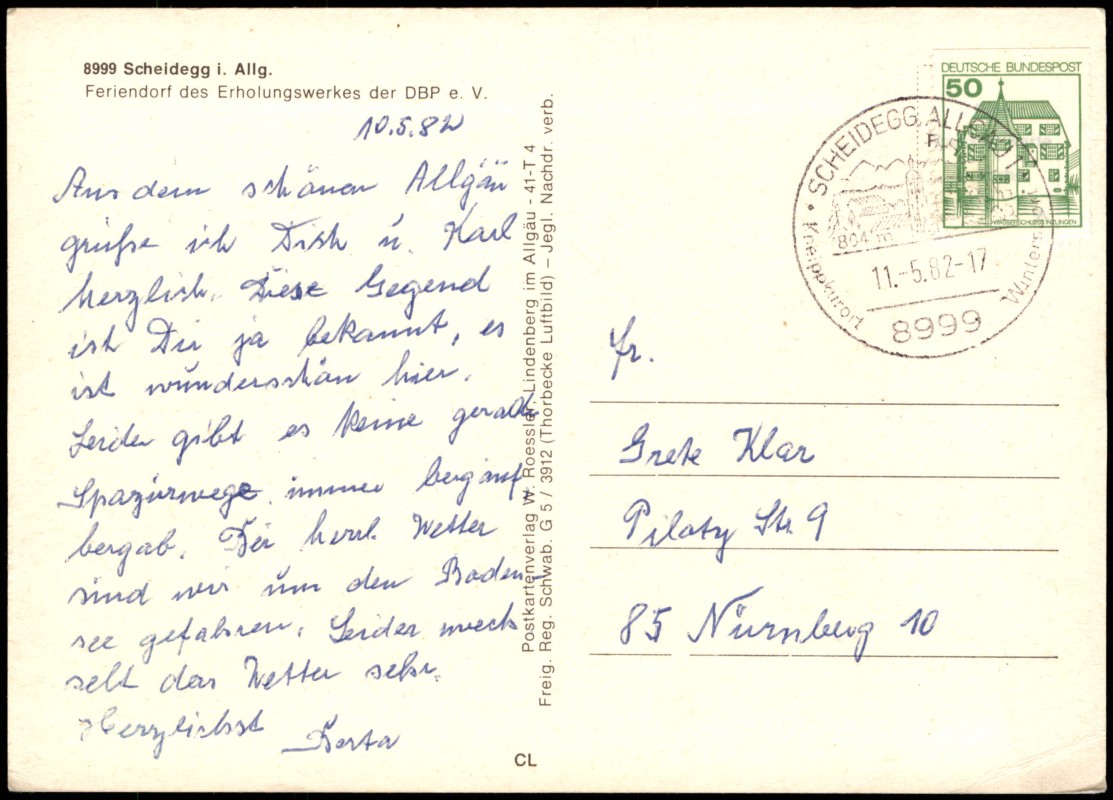 8999 Scheidegg i. Allg.
Feriendorf des Erholungswerkes der DBP e. V.
10.5.82
Aus dem schönen Allgäu
grüße ich Dich u. Karl
herzlich. Diese Gegend
ist Dir ja bekannt, es
ist wunderschön hier.
Leider gibt es keine gerade
Spazierwege immer bergauf
bergab. Bei herrl. Wetter
sind wir um den Boden-
see gefahren. Leider wech
selt das Wetter sehr.
Herzlichst
Berta
Postkartenverlag W. Roessler, Lindenberg im Allgäu - 41-T 4
Freig. Reg. Schwab. G 5 / 3912 (Thorbecke Luftbild) – Jegl. Nachdr. verb.
CL
DEUTSCHE BUNDESPOST
50
WASSERSCHLOSS INZLINGEN
SCHEIDEGG, ALLGÄU 1
804 m
11.-5.82-17
Kneippkurort
8999
Fr.
Grete Klar
Piloty Str. 9
85 Nürnberg 10